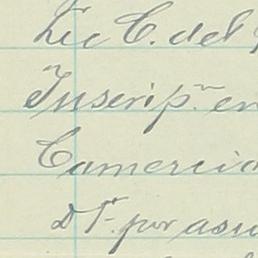 Lic C. del
Inscripn. en
Comercio
D F. por asu